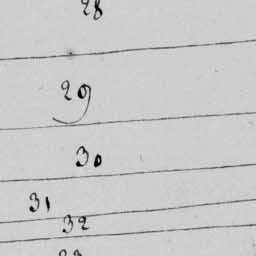 28
29
30
31
32
33